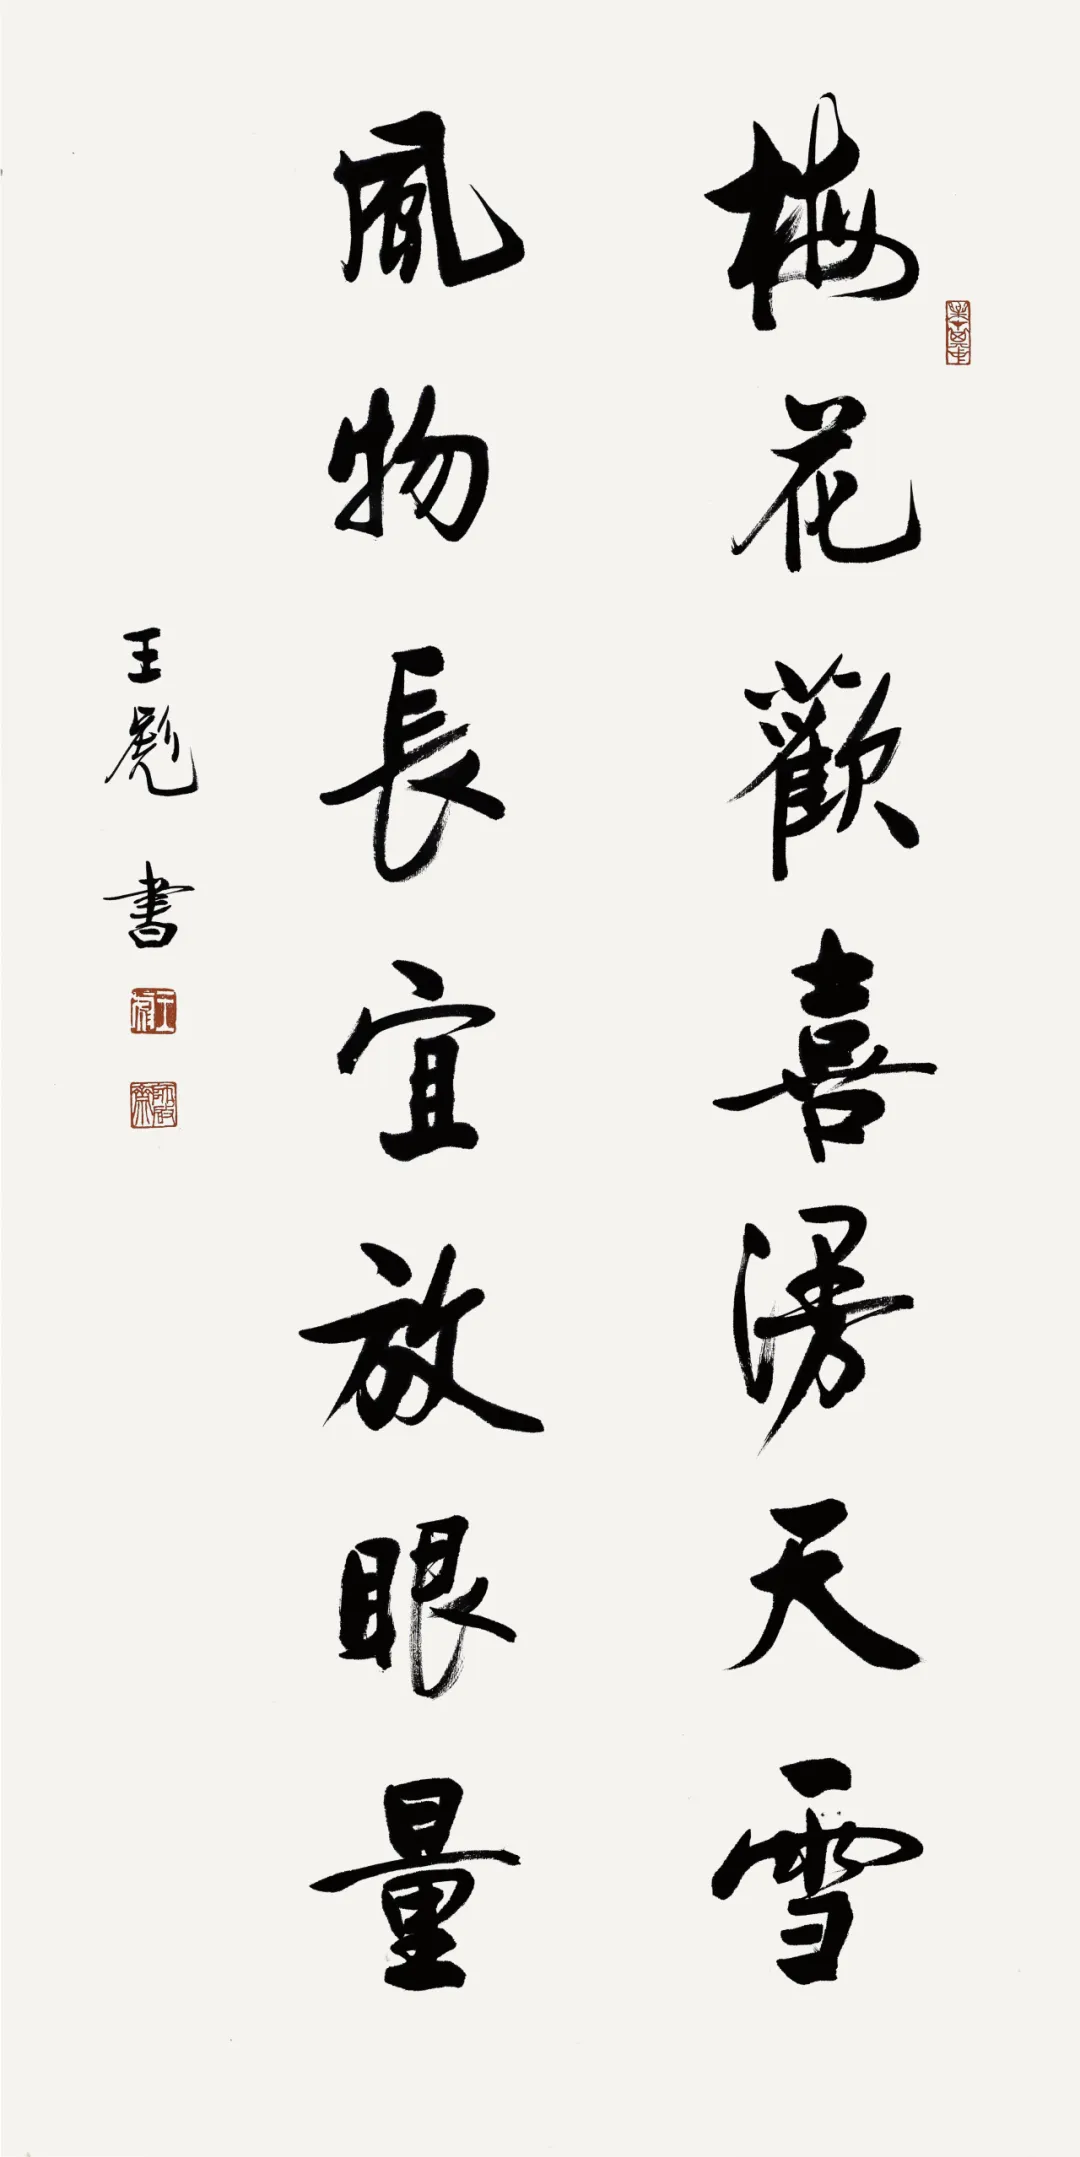 梅花歡喜漫天雪
風物長宜放眼量
王彪書